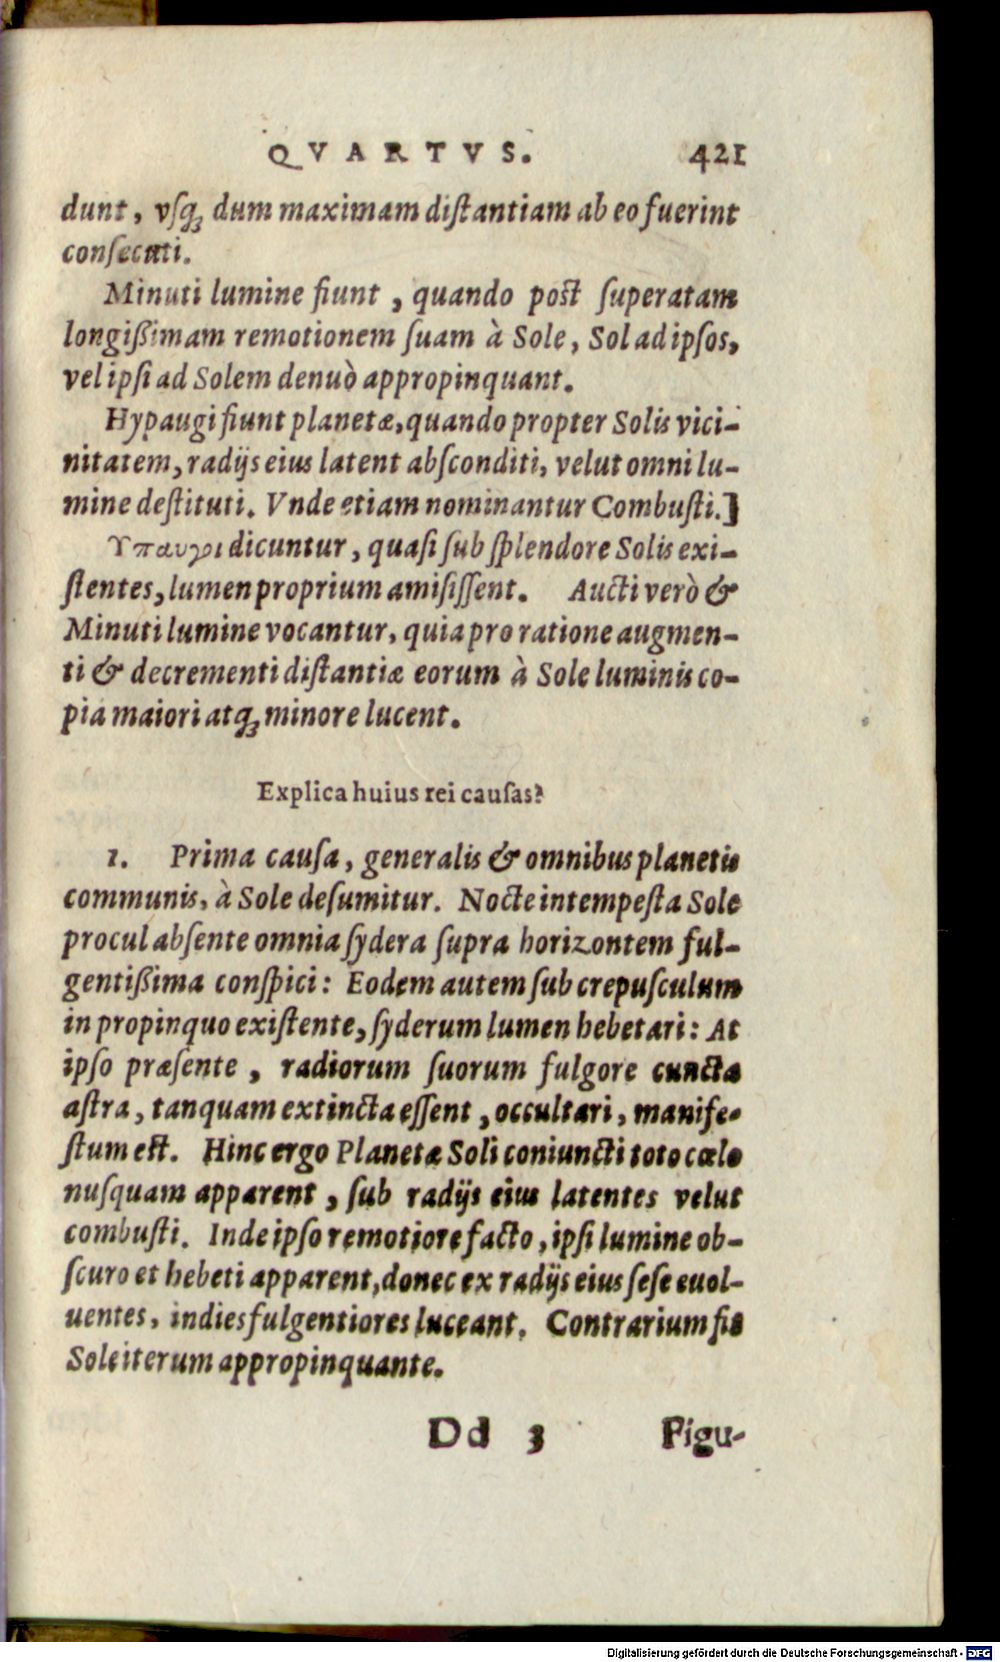 QVARTVS. 421
dunt, vſq́ꝫ dum maximam diſtantiam ab eo fuerint
conſecuti.
Minuti lumine fiunt, quando poſt ſuperatam
longißimam remotionem ſuam à Sole, Sol ad ipſos,
vel ipſi ad Solem denuò appropinquant.
Hypaugi fiunt planetæ, quando propter Solis vici-
nitatem, radijs eius latent abſconditi, velut omni lu-
mine deſtituti. Vnde etiam nominantur Combuſti.]
Υπαυγοι dicuntur, quaſi ſub ſplendore Solis exi-
ſtentes, lumen proprium amiſiſſent. Aucti verò &
Minuti lumine vocantur, quia pro ratione augmen-
ti & decrementi diſtantiæ eorum à Sole luminis co-
pia maiori atqꝫ minore lucent.
Explica huius rei cauſas?
1. Prima cauſa, generalis & omnibus planetis
communis, à Sole deſumitur. Nocte intempeſta Sole
procul abſente omnia ſydera ſupra horizontem ful-
gentißima conſpici: Eodem autem ſub crepuſculum
in propinquo exiſtente, ſyderum lumen hebetari: At
ipſo præſente, radiorum ſuorum fulgore cuncta
aſtra, tanquam extincta eſſent, occultari, manife-
ſtum eſt. Hinc ergo Planetæ Soli coniuncti toto cœlo
nuſquam apparent, ſub radijs eius latentes velut
combuſti. Inde ipſo remotiore facto, ipſi lumine ob-
ſcuro et hebeti apparent, donec ex radijs eius ſeſe euol-
uentes, indies fulgentiores luceant. Contrarium fit
Sole iterum appropinquante.
Dd 3 Figu-
Digitalisierung gefördert durch die Deutsche Forschungsgemeinschaft - DFG